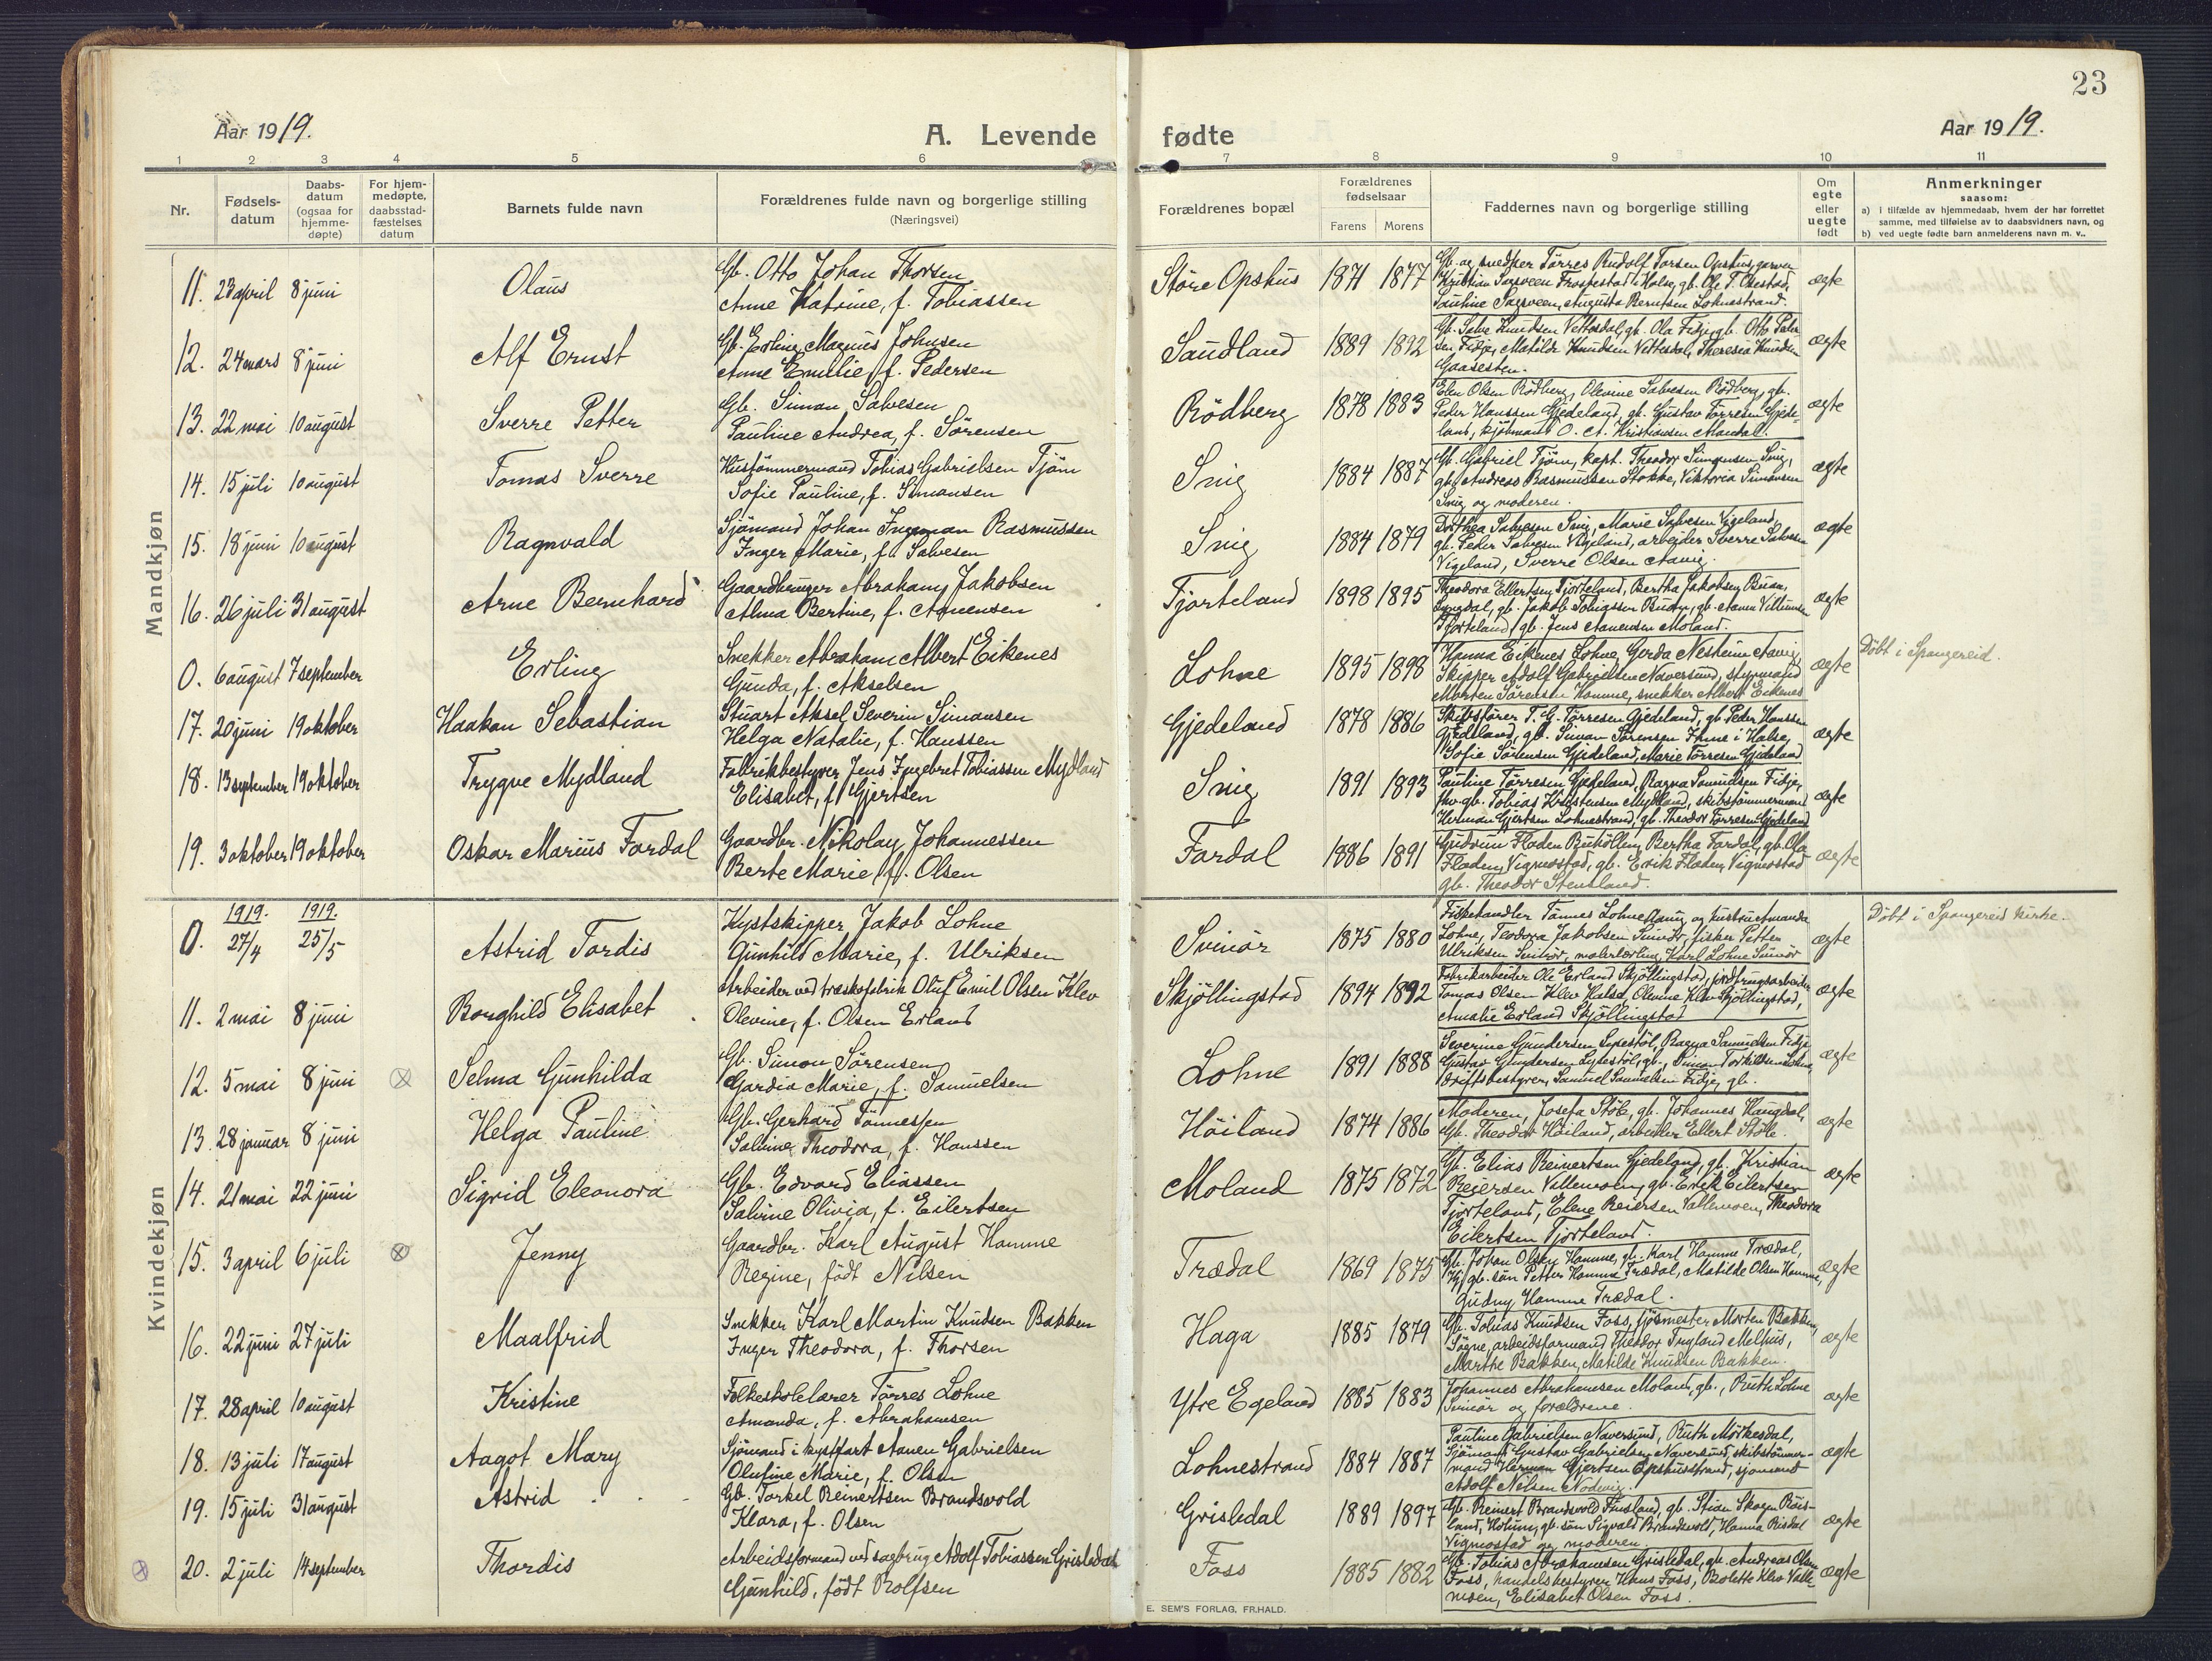 23
Aar 1919.
A. Levende fødte
Aar 1919.
1 2 3 4 5 6 7 8 9 10 11
Nr.
Fødselsdatum
Daabsdatum (ogsaa for hjemmedøpte)
For hjemmedøpte, daabsstadfæstelses datum
Barnets fulde navn
Forældrenes fulde navn og borgerlige stilling
(Næringsvei)
Forældrenes bopæl
Forældrenes fødselsaar
Farens Morens
Faddernes navn og borgerlige stilling
Om egte eller uegte født
Anmerkninger
saasom:
a) i tilfælde av hjemmedaab, hvem der har forrettet
samme, med tilføielse av to daabsvidners navn, og
b) ved uegte fødte barn anmelderens navn m. v..
Mandkjøn
11. 23 april 8 juni Olaus
Gb. Otto Johan Thorsen
Anne Katrine, f. Tobiassen
Støre Opshus 1871 1877
Gb. og snedker Tørres Rudolf Torsen Opshus, garver
Kristian Sagveen Frøstestad i Halse, gb. Ole T.
Pauline Sagveen, Augusta Berntsen Lohnestrand.
ægte
12. 24 mars 8 juni Alf Ernst
Gb. Erling Magnus Johnsen
Anne Emilie, f. Pedersen
Saudland 1889 1892
Gb. Salve Knudsen Vettesdal, gb. Ola Fidje, gb. Otto Peder
sen Fidje, Matilde Knudsen Vettesdal, Theresia Knudsen
Gaasesten.
ægte
13. 22 mai 10 august Sverre Petter
Gb. Simon Salvesen
Pauline Andrea, f. Sørensen
Rødberg 1878 1883
Elen Olsen Rødberg, Olevine Salvesen Rødberg, gb.
Peder Hanssen Gjedeland, gb. Gustav Tørresen Gjede-
land, kjøbmand O. A. Kristiansen Mandal.
ægte
14. 15 juli 10 august Tomas Sverre
Hustømmermand Tobias Gabrielsen Tjøm
Sofie Pauline, f. Simonsen
Snig 1884 1887
Gb. Gabriel Tjøm, kapt. Theodor Simonsen Snig,
gb. Andreas Rasmussen Stokke, Viktoria Simonsen
Snig og moderen.
ægte
15. 18 juni 10 august Ragnvald
Sjømand Johan Ingeman Rasmussen
Inger Marie, f. Salvesen
Snig 1884 1879
Dorthea Salvesen Snig, Marie Salvesen Vigeland,
gb. Peder Salvesen Vigeland, arbeider Sverre Salvesen
Vigeland, Sverre Olsen Aavig.
ægte
16. 26 juli 31 august Arne Bernhard
Gaardbruger Abraham Jakobsen
Alma Bertine, f. Aanensen
Fjorteland 1898 1895
Theodora Ellertsen Tjorteland, Bertha Jakobsen Buan,
Lyngdal, gb. Jakob Tobiassen Buan, gb. Aanen Villumsen
Tjorteland, gb. Jens Aanensen Moland.
ægte
0. 6 august 7 september Erling
Snekker Abraham Albert Eikenes
Gunda, f. Akselsen
Lohne 1895 1898
Hanna Eikenes Lohne, Gerda Nesheim Aavig,
Skipper Adolf Gabrielsen Naversund, styrmand
Morten Sørensen Homme, snekker Albert Eikenes
ægte
Døbt i Spangereid.
17. 20 juni 19 oktober Haakon Sebastian
Stuart Aksel Severin Simonsen
Helga Natalie, f. Hanssen
Gjedeland 1878 1886
Skibsfører T. G. Tørresen Gjedeland, gb. Peder Hanssen
Gjedeland, gb. Simon Sørensen Ihme i Halse,
Sofie Sørensen Gjedeland, Marie Tørresen Gjedeland
ægte
18. 13 september 19 oktober Trygve Mydland
Fabrikbestyrer Jens Ingebret Tobiassen Mydland
Elisabet, f. Gjertsen
Snig 1891 1893
Pauline Tørresen Gjedeland, Ragna Samuelsen Fidje,
fhv. gb. Tobias Kristensen Mydland, skibstømmermand
Herman Gjertsen Lohnestrand, gb. Theodor Tørresen Gjedeland
ægte
19. 3 oktober 19 oktober Oskar Marius Fardal
Gaardbr. Nikolay Johannessen
Berte Marie, f. Olsen
Fardal 1886 1891
Gudrun Fladen Buhøllen, Bertha Fardal, gb. Ola
Fladen Vigmostad, gb. Erik Fladen Vigmostad
gb. Theodor Stensland.
ægte
Kvindekjøn
1919. 1919.
0. 27/4 25/5 Astrid Tordis
Kystskipper Jakob Lohne
Gunhild Marie, f. Ulriksen
Svinør 1875 1880
Fiskehandler Tønnes Lohne Aavig og hustru Amanda
Lohne, Teodora Jakobsen Svinør, fisker Petter
Ulriksen Svinør, malerlærling Karl Lohne Svinør
ægte
Døbt i Spangereid kirke.
11. 2 mai 8 juni Borghild Elisabet
Arbeider ved træskofabrik Oluf Emil Olsen Klev
Olevine, f. Olsen Erland
Skjøllingstad 1894 1892
Fabrikarbeider Ole Erland Skjøllingstad, jordbrugsarbeider
Tomas Olsen Klev Halse, Olevine Klev Skjøllingstad,
Amalie Erland Skjøllingstad
ægte
12. 5 mai 8 juni Selma Gunhilda
Gb. Simon Sørensen
Gardia Marie, f. Samuelsen
Lohne 1891 1888
Severine Gundersen Lysestøl, Ragna Samuelsen Fidje
Gustav Gundersen Lysestøl, gb., Simon Torkildsen Lohne,
driftsbestyrer, Samuel Samuelsen Fidje, gb.
ægte
13. 28 januar 8 juni Helga Pauline
Gb. Gerhard Tønnessen
Salvine Theodora, f. Hanssen
Høiland 1874 1886
Moderen, Josefa Støle, gb. Johannes Haugdal,
Gb. Theodor Høiland, arbeider Ellert Støle.
ægte
14. 21 mai 22 juni Sigrid Eleonora
Gb. Edvard Eliassen
Salvine Olivia, f. Eilertsen
Moland 1875 1872
Gb. Elias Reinertsen Gjedeland, gb. Kristian
Reiersen Vallemoen, gb. Erik Eilertsen
Tjorteland, Elene Reiersen Vallemoen, Theodora
Eilertsen Tjorteland.
ægte
15. 3 april 6 juli Jenny
Gaardbr. Karl August Homme
Regine, født Nilsen
Trædal 1869 1875
Gb. Johan Olsen Homme, gb. Karl Homme Trædal,
gb. søn Petter Homme Trædal, Matilde Olsen Homme,
Gudny Homme Trædal.
ægte
16. 22 juni 27 juli Maalfrid
Snekker Karl Martin Knudsen Bakken
Inger Theodora, f. Thorsen
Haga 1885 1879
Gb. Tobias Knudsen Foss, gjøsmester Morten Bakken,
Søgne, arbeidsformand Theodor Trygland Melhus,
Marthe Bakken, Matilde Knudsen Bakken.
ægte
17. 28 april 10 august Kristine
Folkeskolelærer Tørres Lohne
Amanda, f. Abrahamsen
Ytre Egeland 1885 1883
Johannes Abrahamsen Moland, gb., Ruth Lohne
Svinør og forældrene.
ægte
18. 13 juli 17 august Aagot Mary
Sjømand i kystfart Aanen Gabrielsen
Olufine Marie, f. Olsen
Lohnestrand 1884 1887
Pauline Gabrielsen Naversund, Ruth Mørkesdal,
Sjømand Gustav Gabrielsen Naversund, skibstømmer-
mand Herman Gjertsen Opshusstrand, sjømand
Adolf Nilsen Nodevig.
ægte
19. 15 juli 31 august Astrid
Gb. Torkel Reinertsen Brandsvold
Klara, f. Olsen
Grisledal 1889 1897
Gb. Reinert Brandsvold Finsland, gb. Stian Skogen Røis-
land, Holum, gb. søn Sigvald Brandsvold, Hanna Risdal
Vigmostad og moderen.
ægte
20. 2 juli 14 september Thordis
Arbeidsformand ved sagbrug Adolf Tobiassen Grisledal
Gunhild, født Rolfsen
Foss 1885 1882
Gb. Tobias Abrahamsen Grisledal, gb. Andreas Olsen
Foss, handelsbestyrer Hans Foss, Bolette Klev Valle-
moen, Elisabet Olsen Foss.
ægte
E. SEM'S FORLAG, FR.HALD.